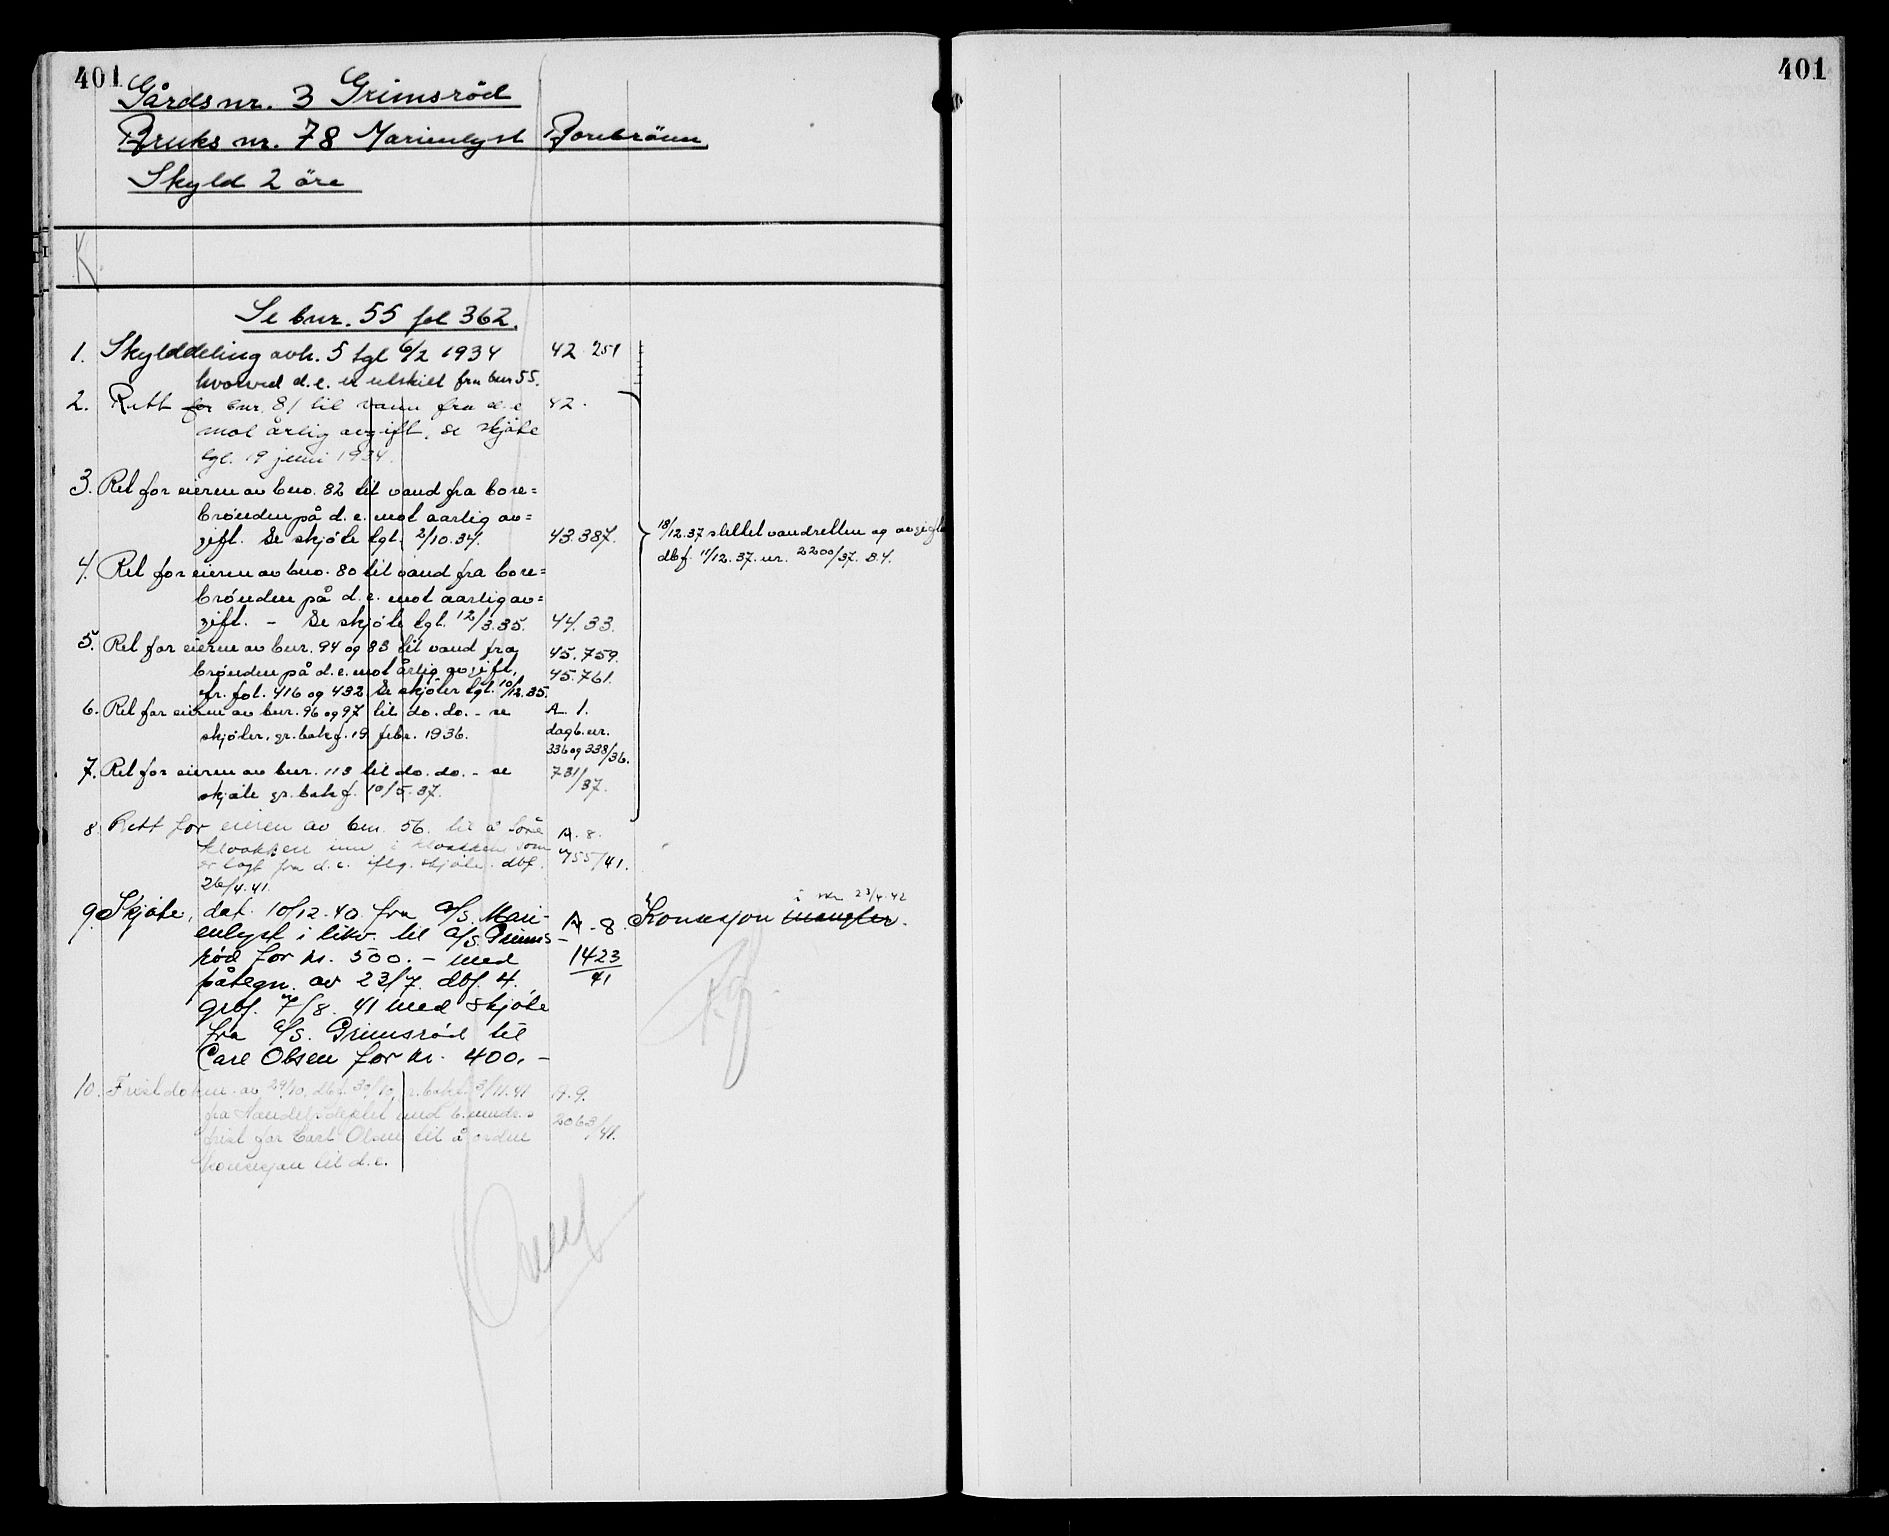 401
Gårdsnr. 3 Grimsröd
Bruks nr. 78 Marienlyst Borebrönn
Skyld 2 öre
K.
Se bnr. 55 fol 362.
1. Skylddeling avh. 5 tgl 6/2 1934 42. 251
hvorved d.e. er utskilt fra bnr 55.
2. Rett for bnr. 81 til vann fra d.e 42.
mot årlig avgift, se skjöte
tgl. 19 juni 1934.
3. Ret for eieren av bno. 82 til vand fra bore=
brönden på d.e. mot aarlig av=
gift. Se skjöte tgl. 2/10.34. 43.387.
18/12.37 slettet vandretten og avgift
dbf. 11/12.37. nr. 2200/37. B.4.
4. Ret for eieren av bno. 80 til vand fra bore=
brönden på d.e. mot aarlig av=
gift. – Se skjöte tgl. 12/3.35. 44.33.
5. Ret for eieren av bnr. 94 og 83 til vand fra 45.759.
brönden på d.e. mot årlig avgift, 45.761.
jfr. fol. 416 og 432. Se skjöter tgl. 10/12.35.
6. Ret for eieren av bnr. 96 og 97 til do. do. – se A. 1.
skjöter, gr.bokf. 19 febr. 1936. dagb.nr.
336 og 338/36.
7. Ret for eieren av bnr. 113 til do. do. – se 731/37.
skjöte gr. bokf. 10/5.37.
8. Rett for eieren av bnr. 56. til å före A. 8.
kloakken inn i kloakken som 755/41.
er lagt fra d.e. iflg. skjöte. dbf.
26/4.41.
9. Skjöte, dat. 10/12.40. fra A/S. Mari- A – 8. Konsesjon mangler. i nr. 23/4.42
enlyst i likv. til A/S. Grims-
röd for kr. 500.– med 1423/41
påtegn. av 23/7. dbf. 4.,
grbf. 7/8. 41 med skjöte
fra A/S. Grimsröd til
Carl Olsen for kr. 400.–
10. Fristdokm. av 29/10, dbf. 30/10, gr.bokf. 3/11.41 A. 9.
fra Handelsdeptet med 6. mndr.s 2063/41.
frist for Carl Olsen til å ordne
konsesjon til d.e.
401